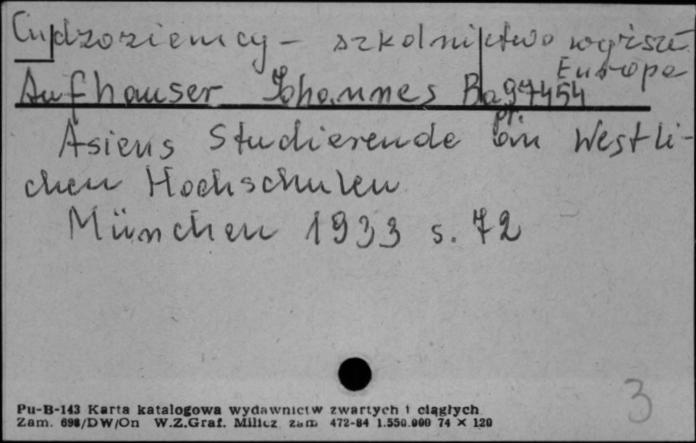 Cudzoziemcy - szkolnictwo wyższe
Europa
Aufhauser Johannes Ba 97454
pr.
Asiens Studierende an Westli-
chen Hochschulen
München 1933 s. 72
3
Pu-B-143 Karta katalogowa wydawnictw zwartych i ciągłych
Zam. 698/DW/On W.Z.Graf. Milicz zam 472-84 1.550.000 74 × 120